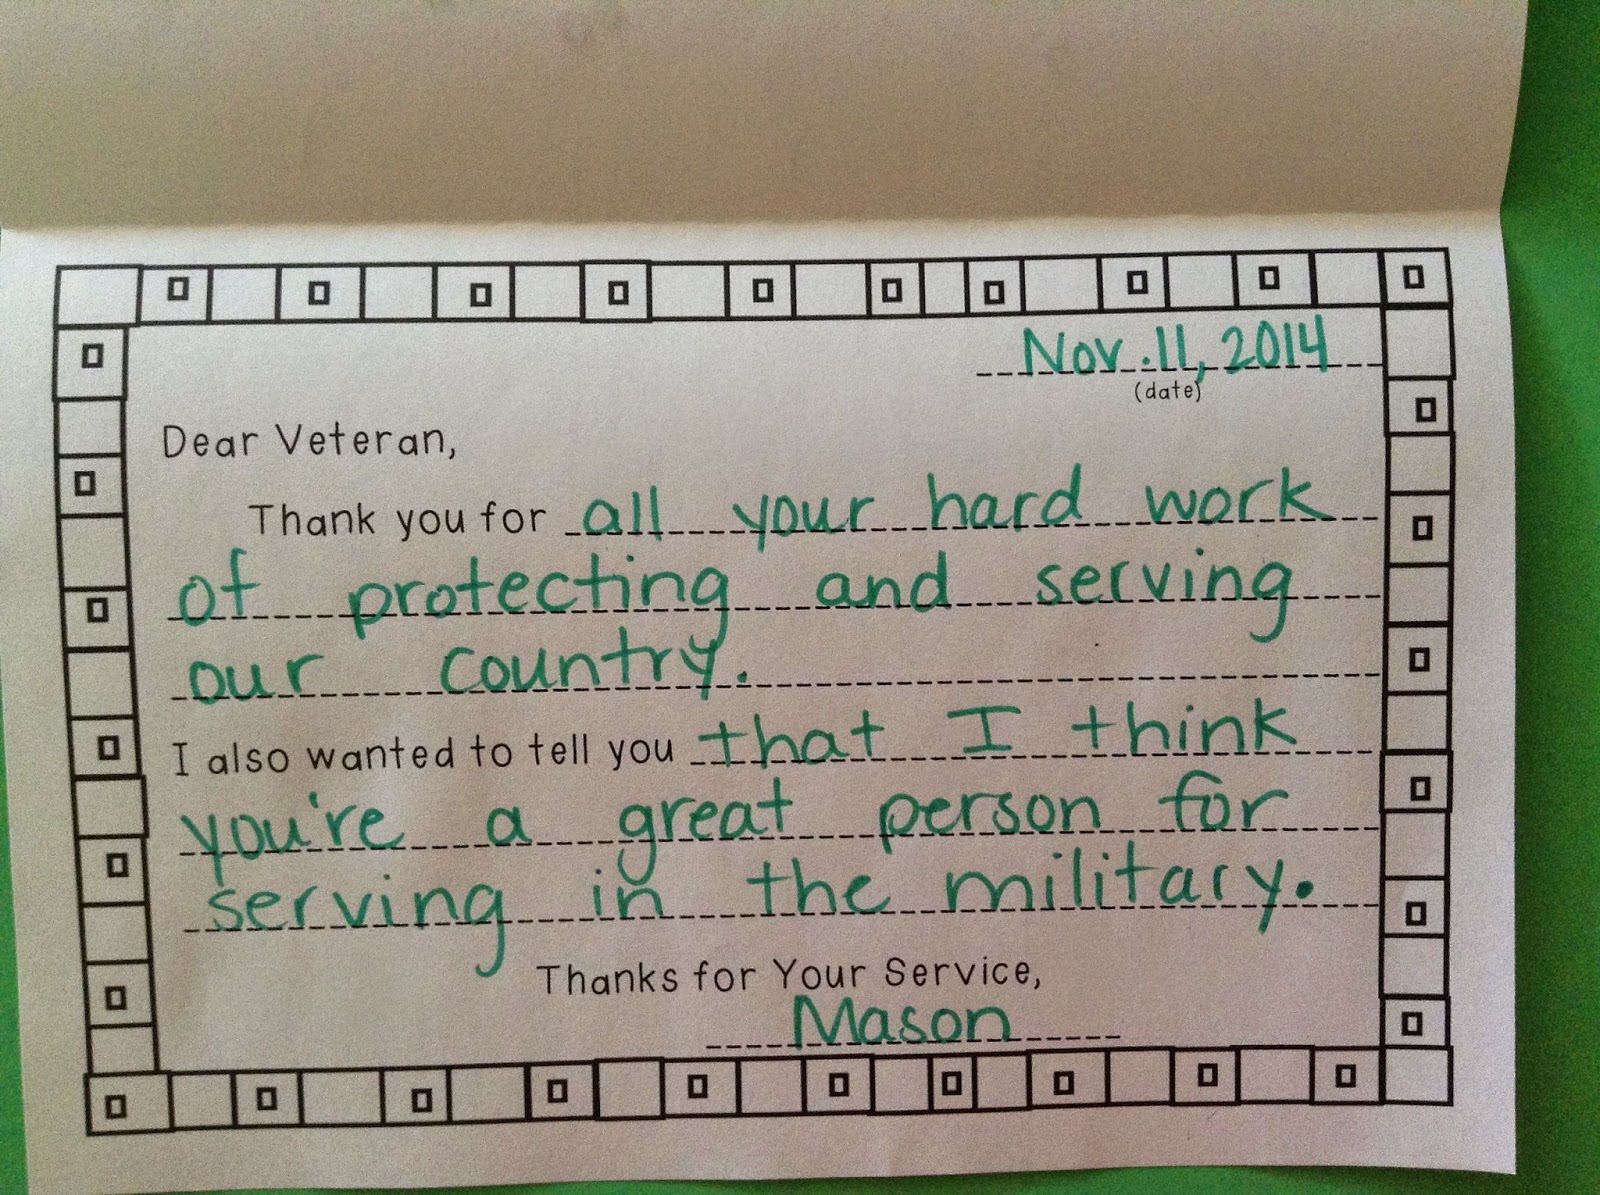 Nov. 11, 2014
(date)
Dear Veteran,
Thank you for all your hard work
of protecting and serving
our country.
I also wanted to tell you that I think
you're a great person for
serving in the military.
Thanks for Your Service,
Mason